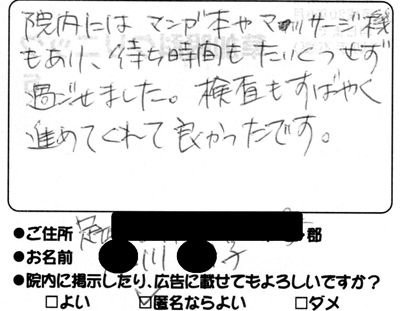 院内には マンガ本やマッサージ機
もあり、待ち時間もたいくつせず
過ごせました。検査もすばやく
進めてくれて良かったです。
●ご住所 郡
●お名前 川 子
●院内に掲示したり、広告に載せてもよろしいですか?
□よい ☑匿名ならよい □ダメ